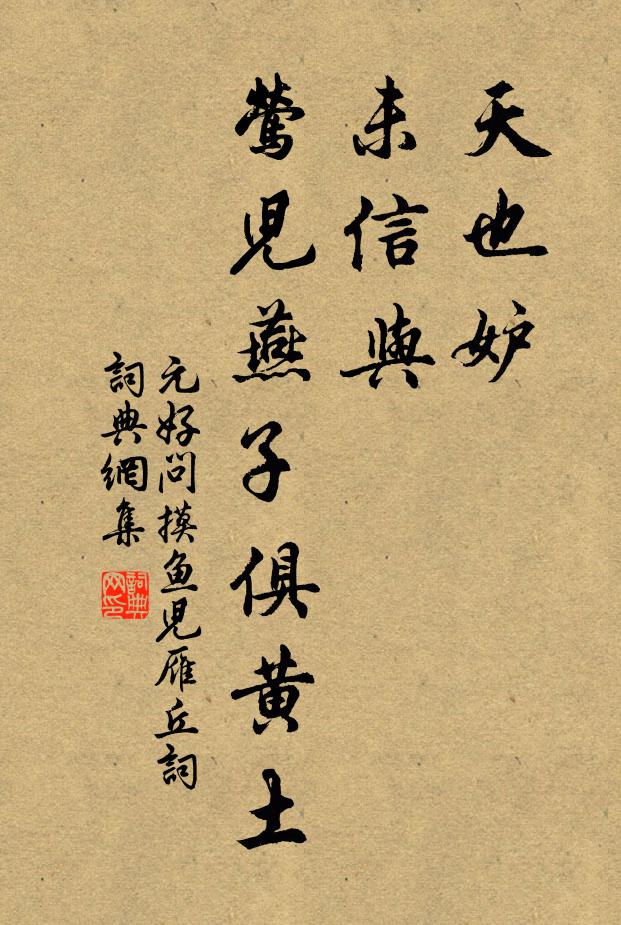 天也妒
未信與
鶯児燕子俱黄土
元好问摸鱼児雁丘詞
詞典網集
詞典网印